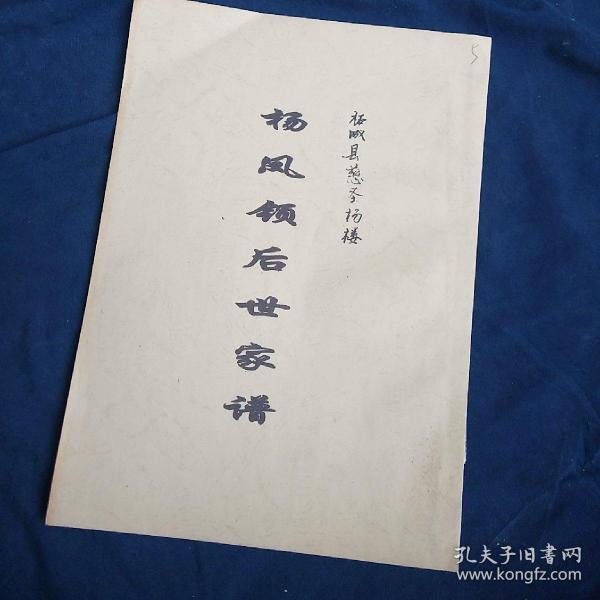 5
柘城县慈圣杨楼
杨凤领后世家谱
孔夫子旧书网
www.kongfz.com